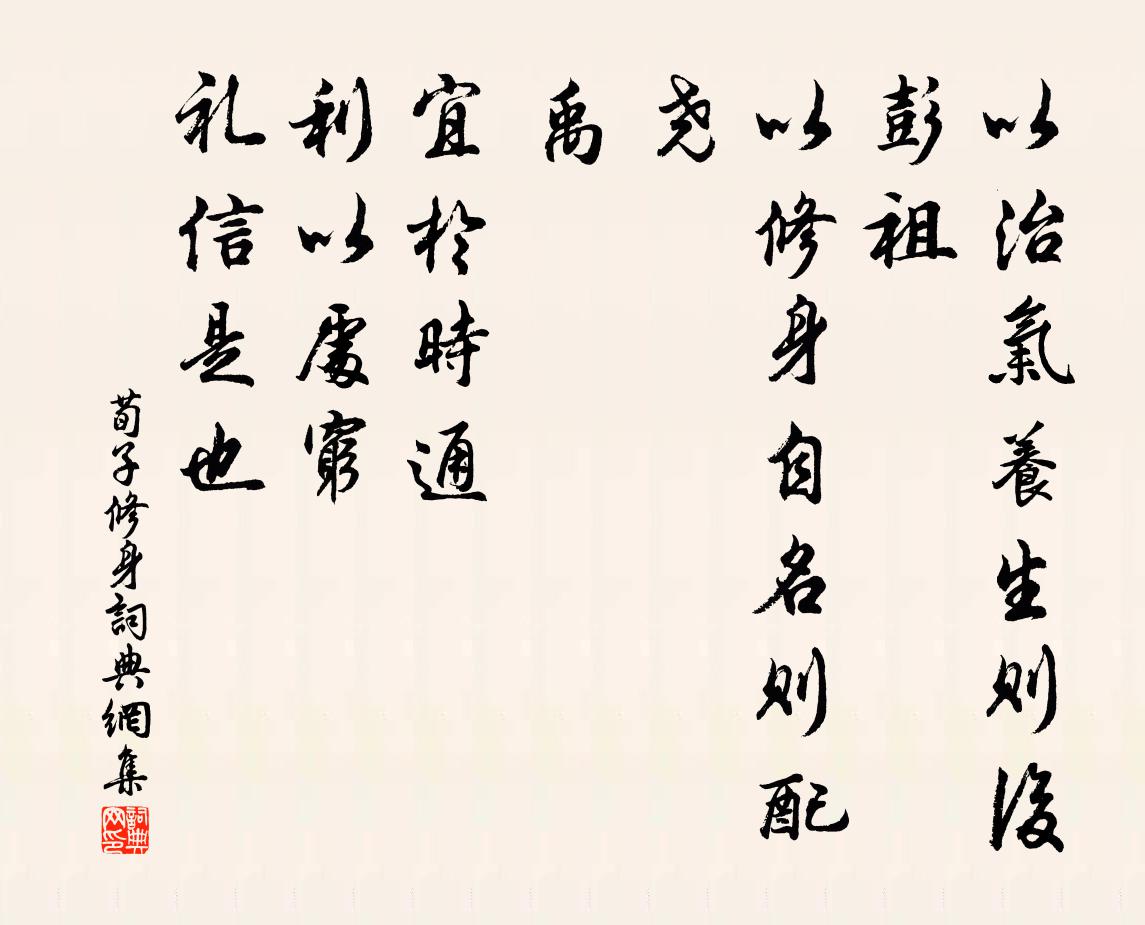 以治氣養生则後
彭祖
以修身自名则配
尧
禹
宜於時通
利以處窮
礼信是也
荀子修身詞典網集
詞典
网印